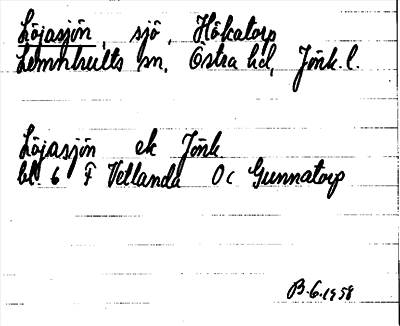 Löjasjön, sjö, Hökatorp
Lemnhults sn, Östra hd, Jönk. l.
Löjasjön ek Jönk
bl. 6 F Vetlanda Oc Gunnatorp
B.6.1958